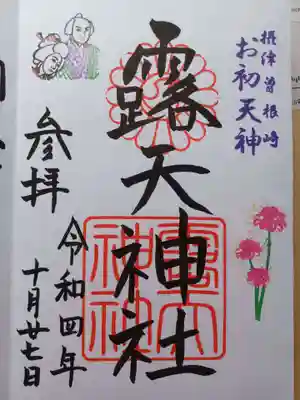 摂津曽根崎
お初天神
露天神社
参拝
令和四年
十月廿七日